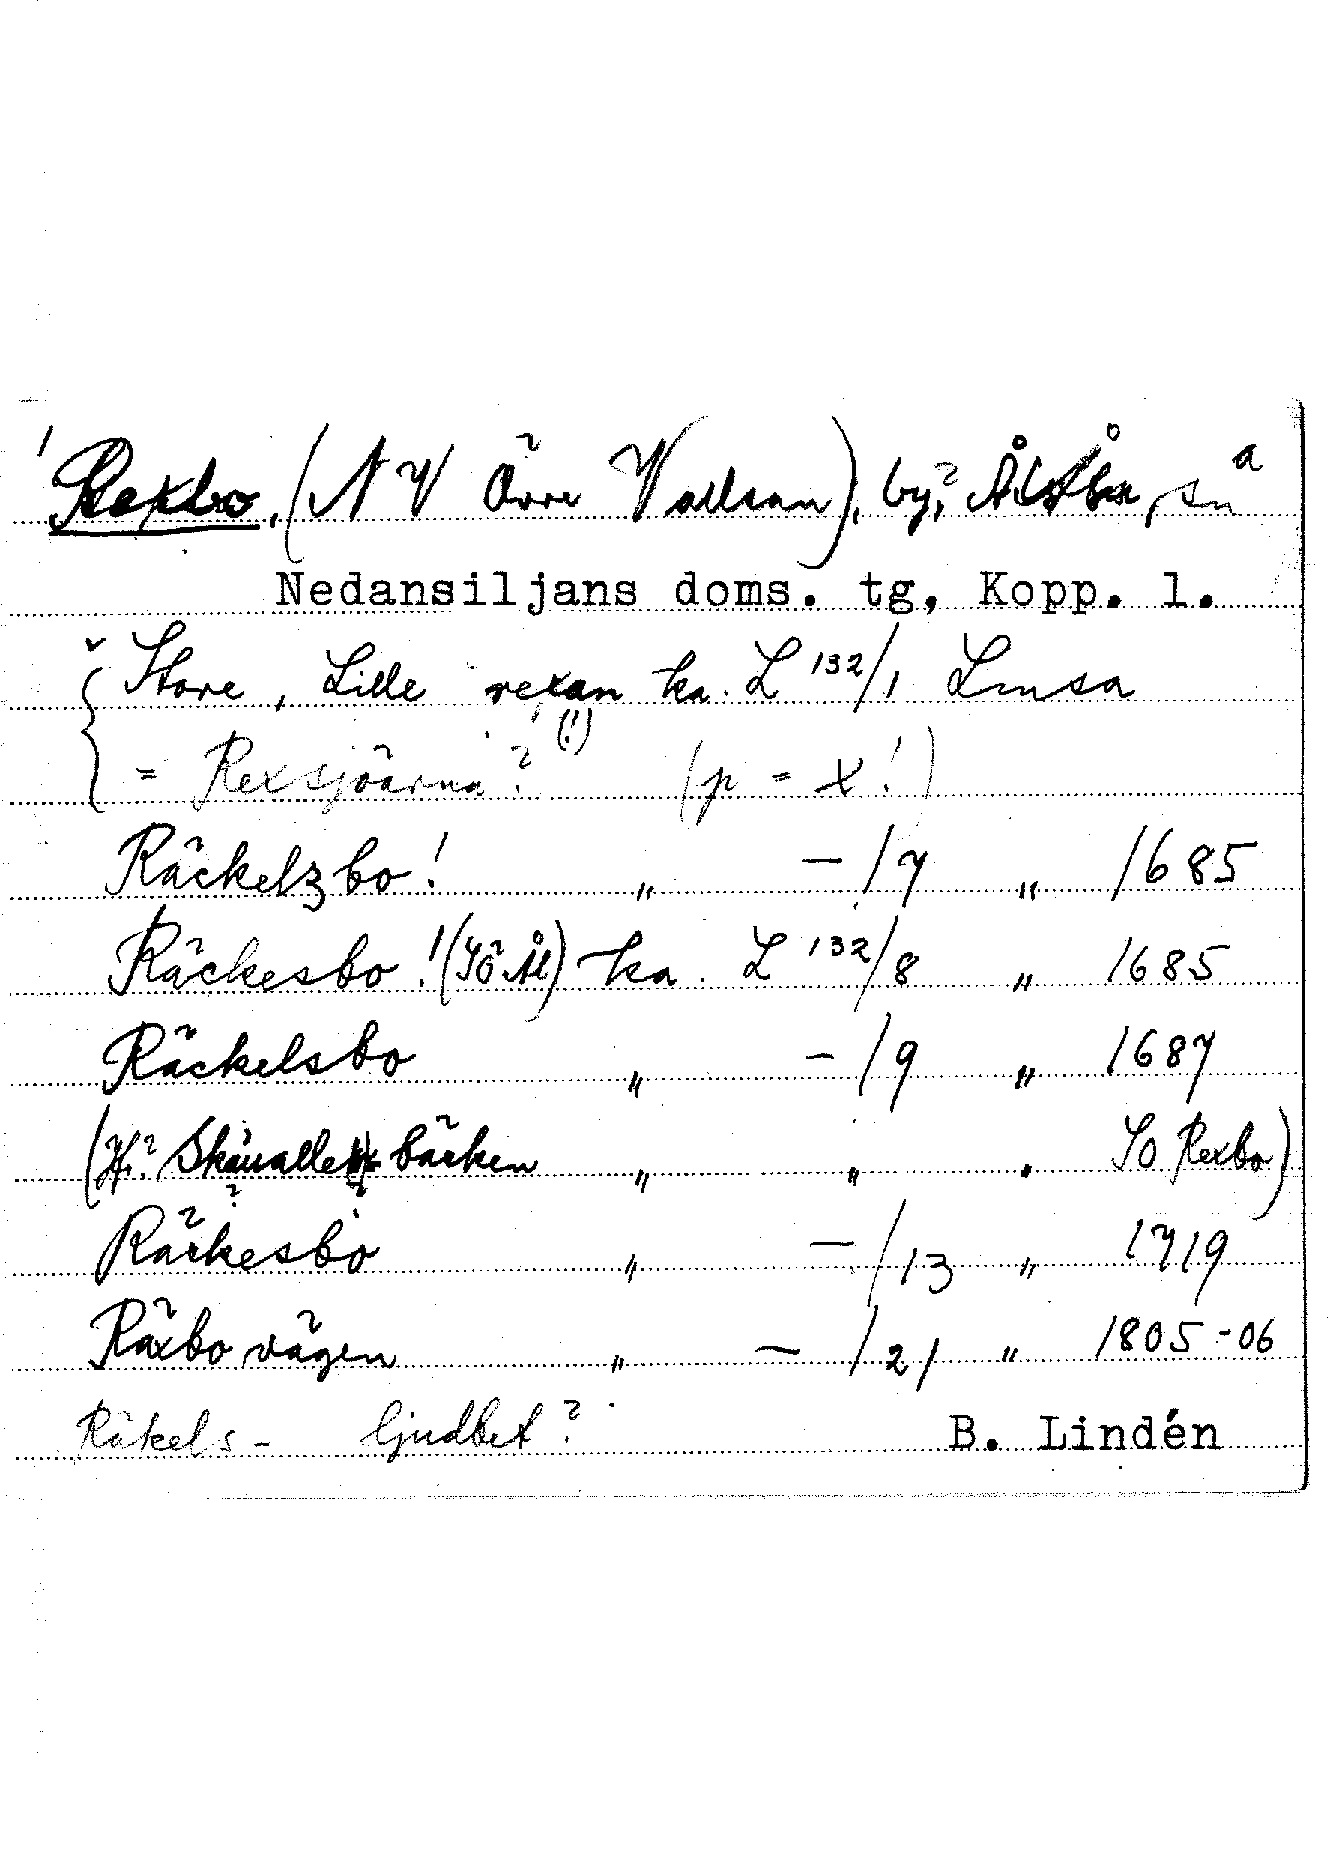 Rexbo, (NV Övre Vallsan), by, Åls sn
Nedansiljans doms. tg, Kopp. l.
Store, Lille rexan ka. L 132/1 Lmsa
= Rexsjöarna? (!) (p = x!)
Räckelzbo! " — /7 " 1685
Räckesbo! (SÖ Ål) ka. L 132/8 " 1685
Räckelsbo " — /9 " 1687
( bäcken " " " SO Rexbo)
Räckesbo " — /13 " 1719
Räxbo vägen " — /21 " 1805-06
Räkels- ljudbet? B. Lindén